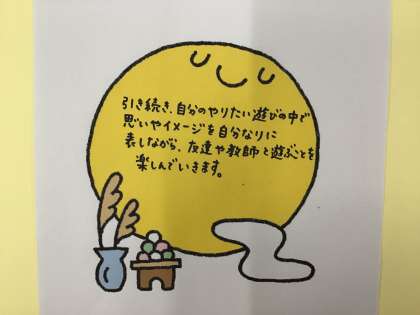 引き続き、自分のやりたい遊びの中で
思いやイメージを自分なりに
表しながら、友達や教師と遊ぶことを
楽しんでいきます。